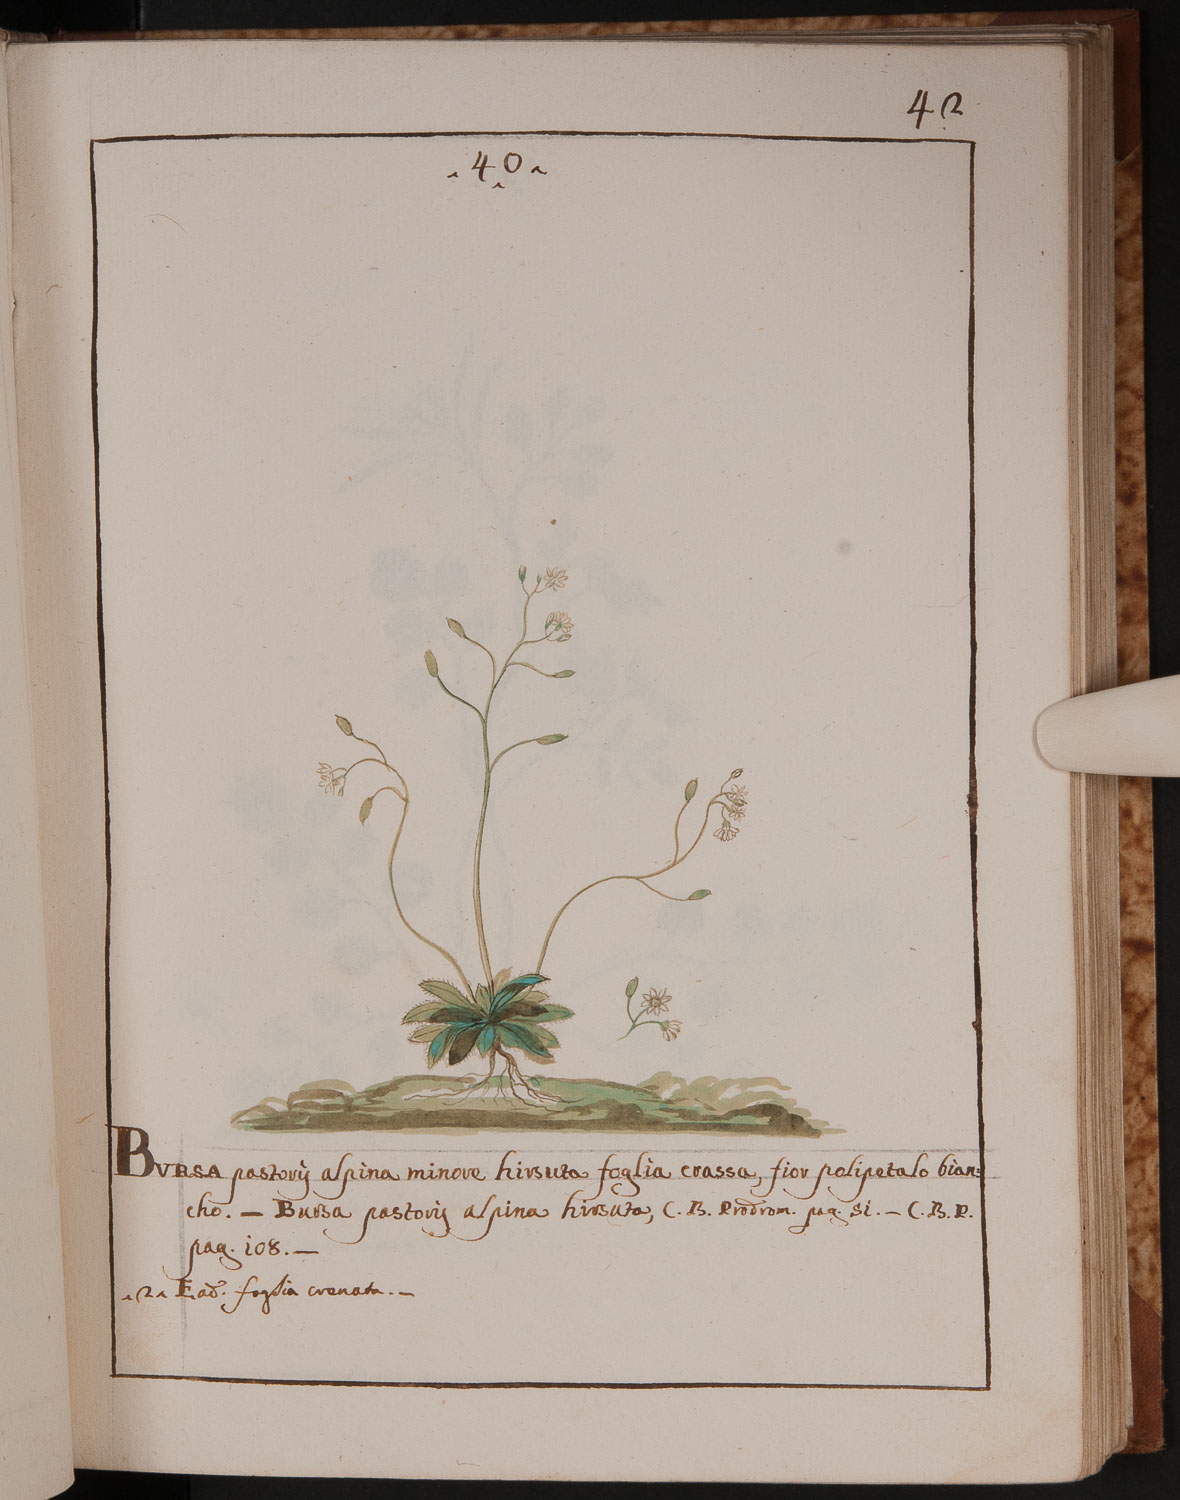 42
40
BURSA pastorij alpina minore hirsuta foglia crassa, fior polipetalo bian=
cho. — Bursa pastorij alpina hirsuta, C. B. Prodrom. pag. 51. — C. B. P.
pag. 108. —
2 Ead. foglia crenata. —